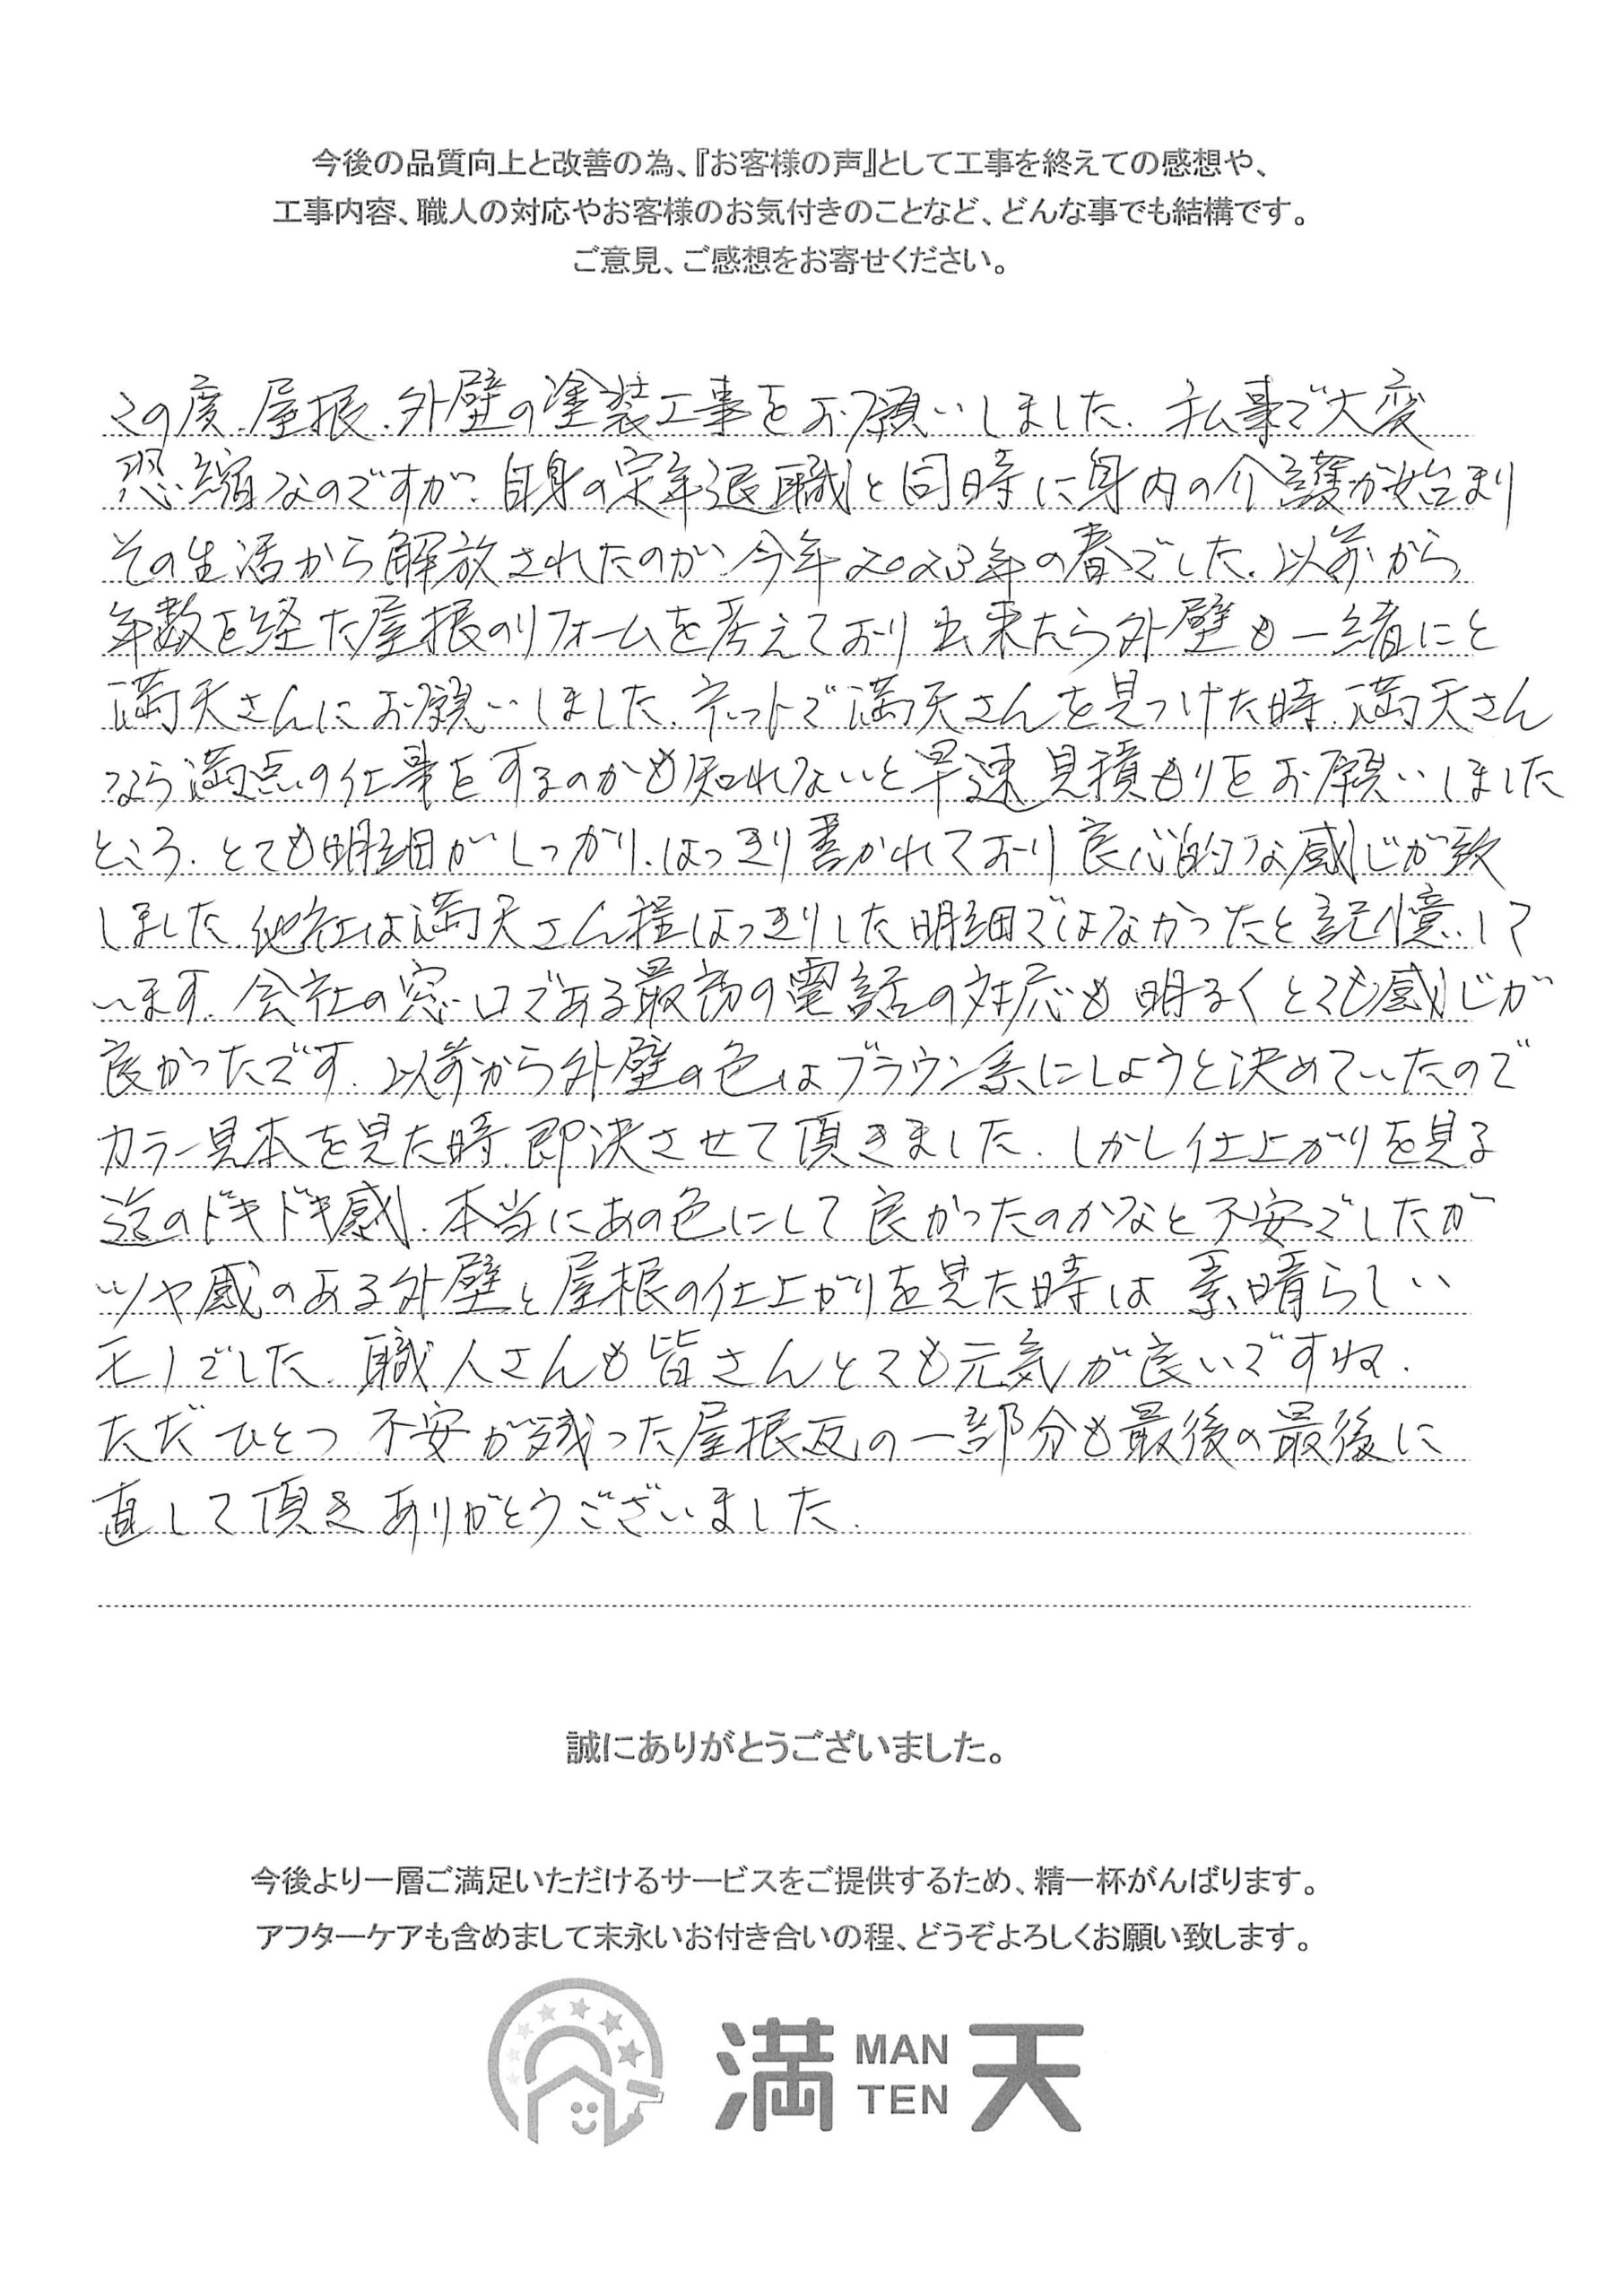 今後の品質向上と改善の為、『お客様の声』として工事を終えての感想や、
工事内容、職人の対応やお客様のお気付きのことなど、どんな事でも結構です。
ご意見、ご感想をお寄せください。
この度、屋根、外壁の塗装工事をお願いしました。私事で大変
恐縮なのですが、自身の定年退職と同時に身内の介護が始まり
その生活から解放されたのが今年2023年の春でした。以前から
年数を経た屋根のリフォームを考えており出来たら外壁も一緒にと
満天さんにお願いしました。ネットで満天さんを見つけた時、満天さん
なら満点の仕事をするのかも知れないと早速見積もりをお願いしました
ところ、とても明細がしっかり、はっきり書かれており良心的な感じが致
しました。他社は満天さん程はっきりした明細ではなかったと記憶して
います。会社の窓口である最初の電話の対応も明るくとても感じが
良かったです。以前から外壁の色はブラウン系にしようと決めていたので
カラー見本を見た時、即決させて頂きました。しかし仕上がりを見る
迄のドキドキ感、本当にあの色にして良かったのかなと不安でしたが
ツヤ感のある外壁と屋根の仕上がりを見た時は素晴らしい
モノでした。職人さんも皆さんとても元気が良いですね。
ただひとつ不安が残った屋根瓦の一部分も最後の最後に
直して頂きありがとうございました。
誠にありがとうございました。
今後より一層ご満足いただけるサービスをご提供するため、精一杯がんばります。
アフターケアも含めまして末永いお付き合いの程、どうぞよろしくお願い致します。
満 MAN TEN 天